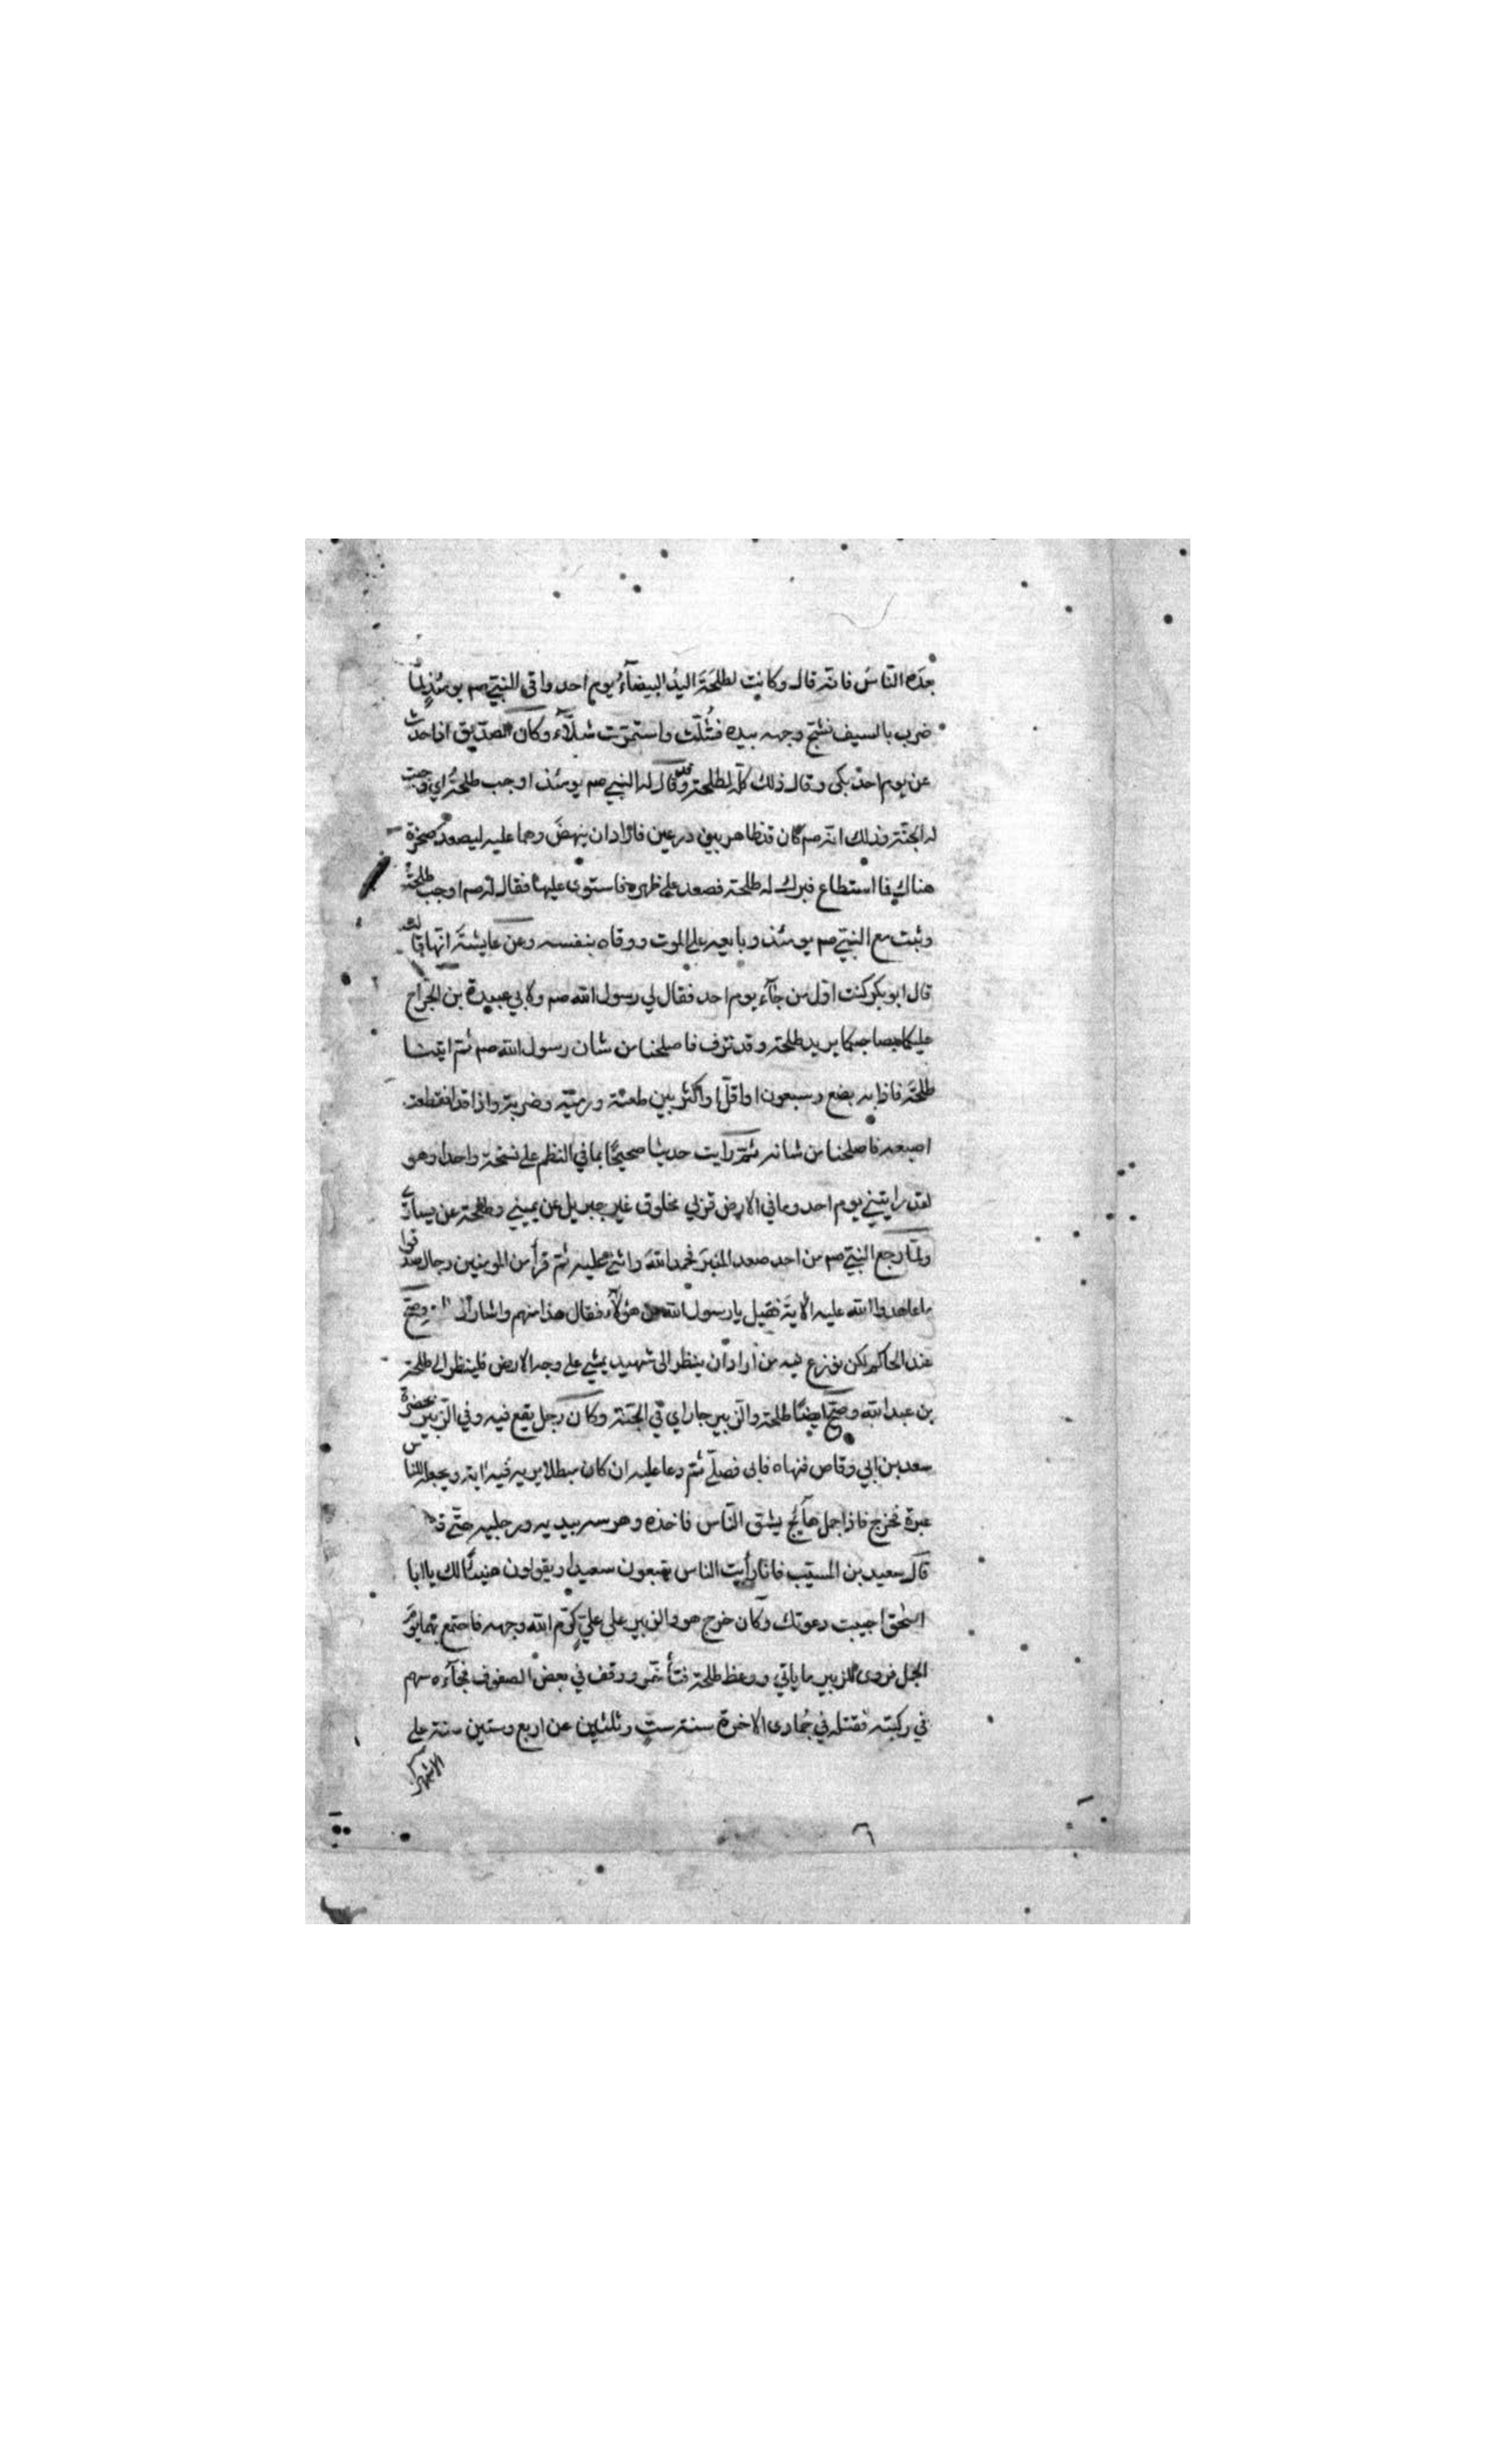 بعده الناس فانه قال وكانت لطلحة اليد البيضآء يوم احد واقى النبي صم يومئذ لما
ضرب بالسيف وجهه بيده فشلت واستمرت شلآء وكان الصديق اذا حدث
عن يوم احد بكى وقال ذلك كله لطلحة وقال له النبي صم يومئذ اوجب طلحة اي وجبت
له الجنة وذلك انه صم كان قد ظاهر بين درعين فاراد ان ينهض وهما عليه ليصعد صخرة
هناك فما استطاع فبرك له طلحة فصعد على ظهره فاستوى عليها فقال له صم اوجب طلحة
وثبت مع النبي صم يومئذ وبايعه على الموت ووقاه بنفسه وعن عايشة انها قالت
قال ابو بكر كنت اول من جآء يوم احد فقال لي رسول الله صم ولابي عبيدة بن الجراح
عليكما بصاحبكما يريد طلحة وقد نزف فاصلحنا من شان رسول الله صم ثم اتينا
طلحة فاذا به بضع وسبعون او اقل او اكثر بين طعنة ورمية وضربة واذا قد انقطعت
اصبعه فاصلحنا من شانه ثم رايت حديثا صحيحا بما في النظم على نسخة واحد وهو
لقد رايتني يوم احد وما في الارض قربي مخلوق غير جبريل عن يميني وطلحة عن يساري
ولما رجع النبي صم من احد صعد المنبر فحمد الله واثنى عليه ثم قرأ من المومنين رجال صدقوا
ما عاهدوا الله عليه الاية فقيل يا رسول الله من هؤلآء فقال هذا منهم واشار الى وصح
عند الحاكم لكن نوزع فيه من اراد ان ينظر الى شهيد يمشي على وجه الارض فلينظر الى طلحة
بن عبد الله وصح ايضا طلحة والزبير جاراي في الجنة وكان رجل يقع فيه وفي الزبير بحضرة
سعد بن ابي وقاص فنهاه فابى فصلى ثم دعا عليه ان كان مبطلا يريه فيه اية ويجعله للناس
عبرة فخرج فاذا جمل هآئج يشق الناس فاخذه وهرسه بيديه ورجليه حتى
قال سعيد بن المسيب فانا رأيت الناس يتبعون سعيدا ويقولون هنيئا لك يا ابا
اسحق اجيبت دعوتك وكان خرج هو والزبير على علي كرم الله وجهه فاجتمع بهما يوم
الجمل فروى للزبير ما ياتي ووعظ طلحة فتأخر ووقف في بعض الصفوف فجآءه سهم
في ركبته فقتله في جمادى الاخرة سنة ست وثلثين عن اربع وستين سنة على
الاشهر